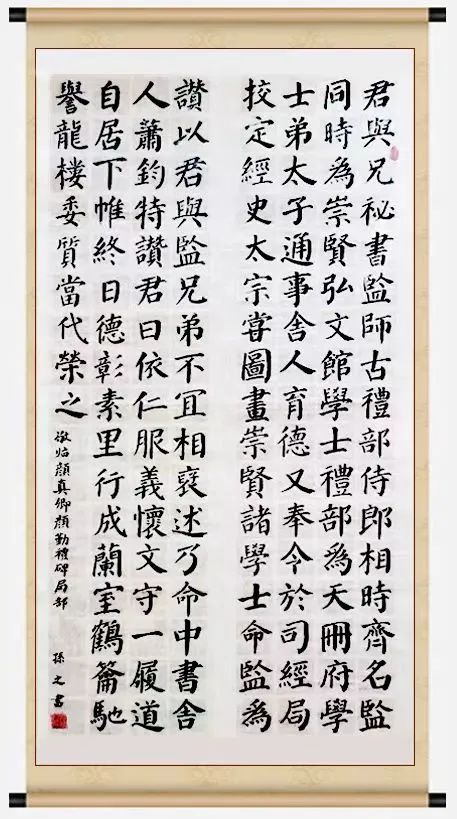 君與兄祕書監師古禮部侍郎相時齊名監
同時為崇賢弘文館學士禮部為天冊府學
士弟太子通事舍人育德又奉令於司經局
挍定經史太宗甞圖畫崇賢諸學士命監為
讚以君與監兄弟不冝相襃述乃命中書舍
人蕭鈞特讚君曰依仁服義懷文守一履道
自居下帷終日德彰素里行成蘭室鶴籥馳
譽龍樓委質當代榮之
敬临顔真卿顔勤禮碑局部